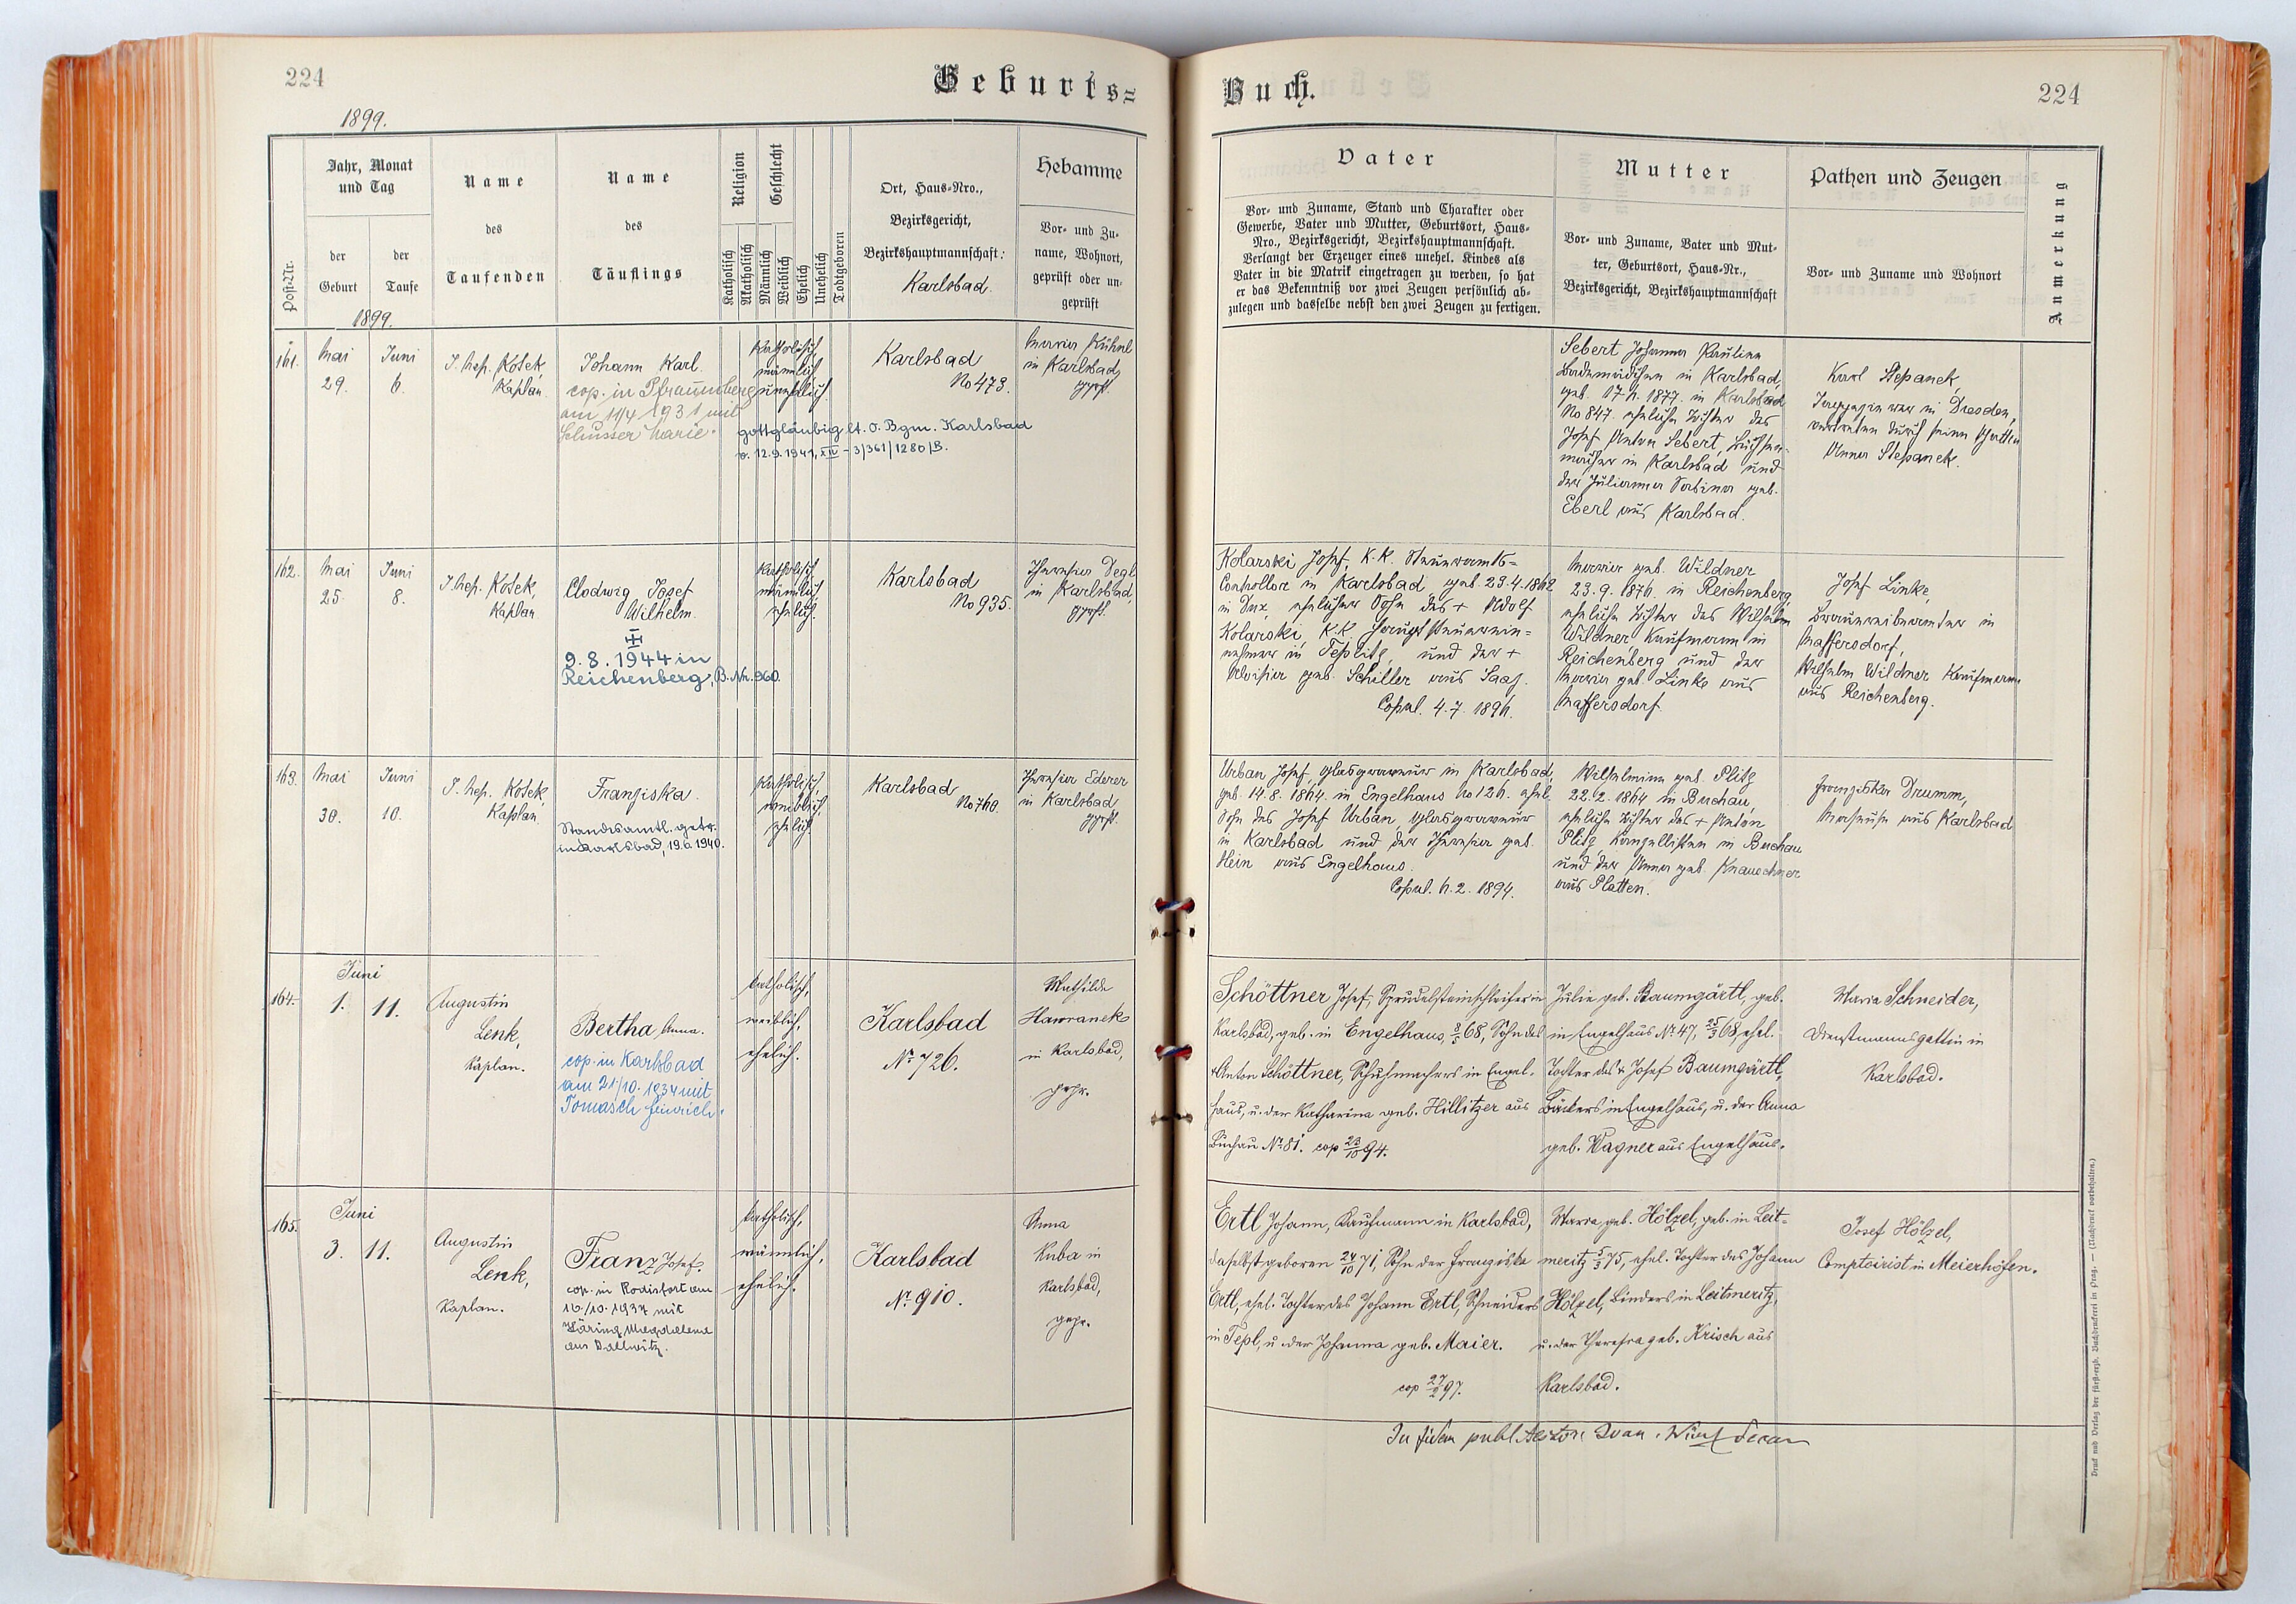 224
Geburts=
1899.
Post-Nr.
Jahr, Monat
und Tag
der
Geburt
der
Taufe
1899.
Name
des
Taufenden
Name
des
Täuflings
Religion
Katholisch
Akatholisch
Geschlecht
Männlich
Weiblich
Ehelich
Unehelich
Todtgeboren
Ort, Haus-Nro.,
Bezirksgericht,
Bezirkshauptmannschaft:
Karlsbad.
Hebamme
Vor- und Zu-
name, Wohnort,
geprüft oder un-
geprüft
161.
Mai
29.
Juni
6.
J. Nep. Kosek,
Kaplan.
Johann Karl.
cop. in Pfraumberg
am 11/4 1931 mit
Schusser Marie.
Katholisch
männlich
unehelich.
gottgläubig lt. O. Bgm. Karlsbad
v. 12.9.1941, XIV-3/361/1280/B.
Karlsbad
No 473.
Maria Kühnl
in Karlsbad,
gepft.
162.
Mai
25.
Juni
8.
J. Nep. Kosek,
Kaplan.
Clodwig Josef
Wilhelm.
9.8.1944 in
Reichenberg, B.Nr. 960.
Katholisch
männlich
ehelich.
Karlsbad
No 935.
Theresia Degl
in Karlsbad,
gepft.
163.
Mai
30.
Juni
10.
J. Nep. Kosek,
Kaplan.
Franziska.
Standesamtl. getr.
in Karlsbad, 19.6.1940.
Katholisch,
weiblich,
ehelich
Karlsbad
No 760.
Theresia Ederer
in Karlsbad
gepft.
164.
Juni
1. 11.
Augustin
Lenk,
Kaplan.
Bertha Anna.
cop. in Karlsbad
am 21/10. 1934 mit
Tomasch Heinrich.
katholisch,
weiblich,
ehelich.
Karlsbad
Nr. 726.
Mathilde
Hawranek
in Karlsbad,
gepr.
165.
Juni
3. 11.
Augustin
Lenk,
Kaplan.
Franz Josef.
cop. in Rodisfort am
16./10. 1937 mit
Häring Magdalena
aus Dallwitz.
katholisch,
männlich,
ehelich.
Karlsbad
Nr. 910.
Anna
Kuba in
Karlsbad,
gepr.
Buch.
224
Vater
Vor- und Zuname, Stand und Charakter oder
Gewerbe, Vater und Mutter, Geburtsort, Haus-
Nro., Bezirksgericht, Bezirkshauptmannschaft.
Verlangt der Erzeuger eines unehel. Kindes als
Vater in die Matrik eingetragen zu werden, so hat
er das Bekenntniß vor zwei Zeugen persönlich ab-
zulegen und dasselbe nebst den zwei Zeugen zu fertigen.
Mutter
Vor- und Zuname, Vater und Mut-
ter, Geburtsort, Haus-Nr.,
Bezirksgericht, Bezirkshauptmannschaft
Pathen und Zeugen
Vor- und Zuname und Wohnort
Anmerkung
Sebert Johanna Paulina
Lademädchen in Karlsbad,
geb. 17.6. 1877. in Karlsbad
No 847. eheliche Tochter des
Josef Anton Sebert, Büchsen-
macher in Karlsbad und
der Julianna Sabina geb.
Eberl aus Karlsbad.
Karl Stepanek,
in Dresden,
vertreten durch seine Gattin
Anna Stepanek.
Kolarski Josef, K.K. Steueramts=
Controllor in Karlsbad, geb. 23.4.1862
in Dux, ehelicher Sohn des + Adolf
Kolarski, K.K. Hauptsteuerein=
nehmer in Teplitz, und der +
Aloisia geb. Schiller aus Saaz.
Copul. 4.7. 1896.
Maria geb. Wildner
23.9.1876. in Reichenberg,
eheliche Tochter des Wilhelm
Wildner Kaufmann in
Reichenberg und der
Maria geb. Linke aus
Maffersdorf.
Josef Linke,
Brauereibeamter in
Maffersdorf,
Wilhelm Wildner Kaufmann
aus Reichenberg.
Urban Josef, Glasgraveur in Karlsbad,
geb. 14.8.1864. in Engelhaus No 126. ehel.
Sohn des Josef Urban, Glasgraveur
in Karlsbad und der Theresia geb.
Hein aus Engelhaus.
Copul. 6.2. 1894.
Wilhelmine geb. Plitz
22.2.1864 in Buchau,
eheliche Tochter des + Anton
Plitz, Kanzellisten in Buchau
und der Anna geb. Knauschner
aus Platten.
Franziska Drumm,
aus Karlsbad
Schöttner Josef, Sprudelsteinschleifer in
Karlsbad, geb. in Engelhaus 68, Sohn des
Anton Schöttner, Schuhmachers in Engel-
haus, u. der Katharina geb. Hillitzer aus
Buchau Nr. 81. cop 23/10 94.
Julie geb. Baumgärtl, geb.
in Engelhaus Nr. 47, 25/3 68, ehel.
Tochter des + Josef Baumgärtl,
Bäckers in Engelhaus, u. der Anna
geb. Wagner aus Engelhaus.
Maria Schneider,
Dienstmannsgattin in
Karlsbad.
Ertl Johann, Kaufmann in Karlsbad,
daselbst geboren 24/10 71, Sohn der Franziska
Ertl, ehel. Tochter des Johann Ertl, Schneiders
in Tepl, u. der Johanna geb. Maier.
cop 27/2 97.
Maria, geb. Hölzel, geb. in Leit=
meritz 5/3 75, ehel. Tochter des Johann
Hölzel, Binders in Leitmeritz,
u. der Theresia geb. Krisch aus
Karlsbad.
Josef Hölzel,
Comptoirist in Meierhöfen.
In fidem publ.
Druck und Verlag der fürst-erzb. Buchdruckerei in Prag. — (Nachdruck vorbehalten.)